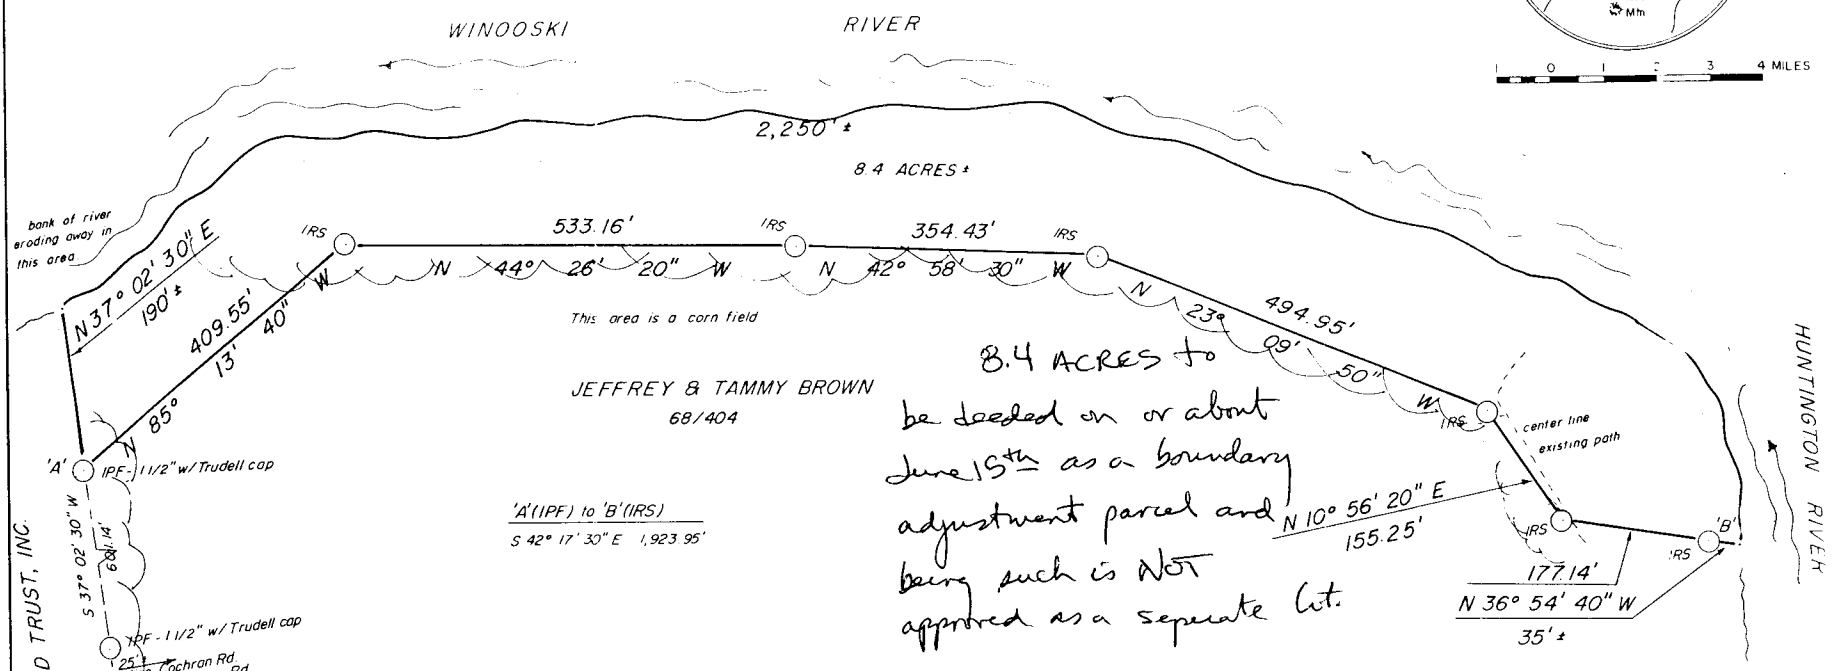 WINOOSKI RIVER
Mtn
1 0 1 2 3 4 MILES
2,250' ±
8.4 ACRES ±
bank of river
eroding away in
this area
N 37° 02' 30" E
190' ±
IRS
533.16'
IRS
354.43'
IRS
N 44° 26' 20" W
N 42° 58' 30" W
409.55'
N 85° 13' 40" W
494.95'
N 23° 09' 50" W
This area is a corn field
JEFFREY & TAMMY BROWN
68/404
8.4 ACRES to
be deeded on or about
June 15th as a boundary
adjustment parcel and
being such is NOT
approved as a seperate lot.
IRS
center line
existing path
HUNTINGTON RIVER
'A'
IPF - 1 1/2" w/ Trudell cap
'A' (IPF) to 'B' (IRS)
S 42° 17' 30" E 1,923.95'
N 10° 56' 20" E
155.25'
IRS
'B'
IRS
177.14'
N 36° 54' 40" W
35' ±
S 37° 02' 30" W
D TRUST, INC.
IPF - 1 1/2" w/ Trudell cap
25'
Cochran Rd.
Rd.